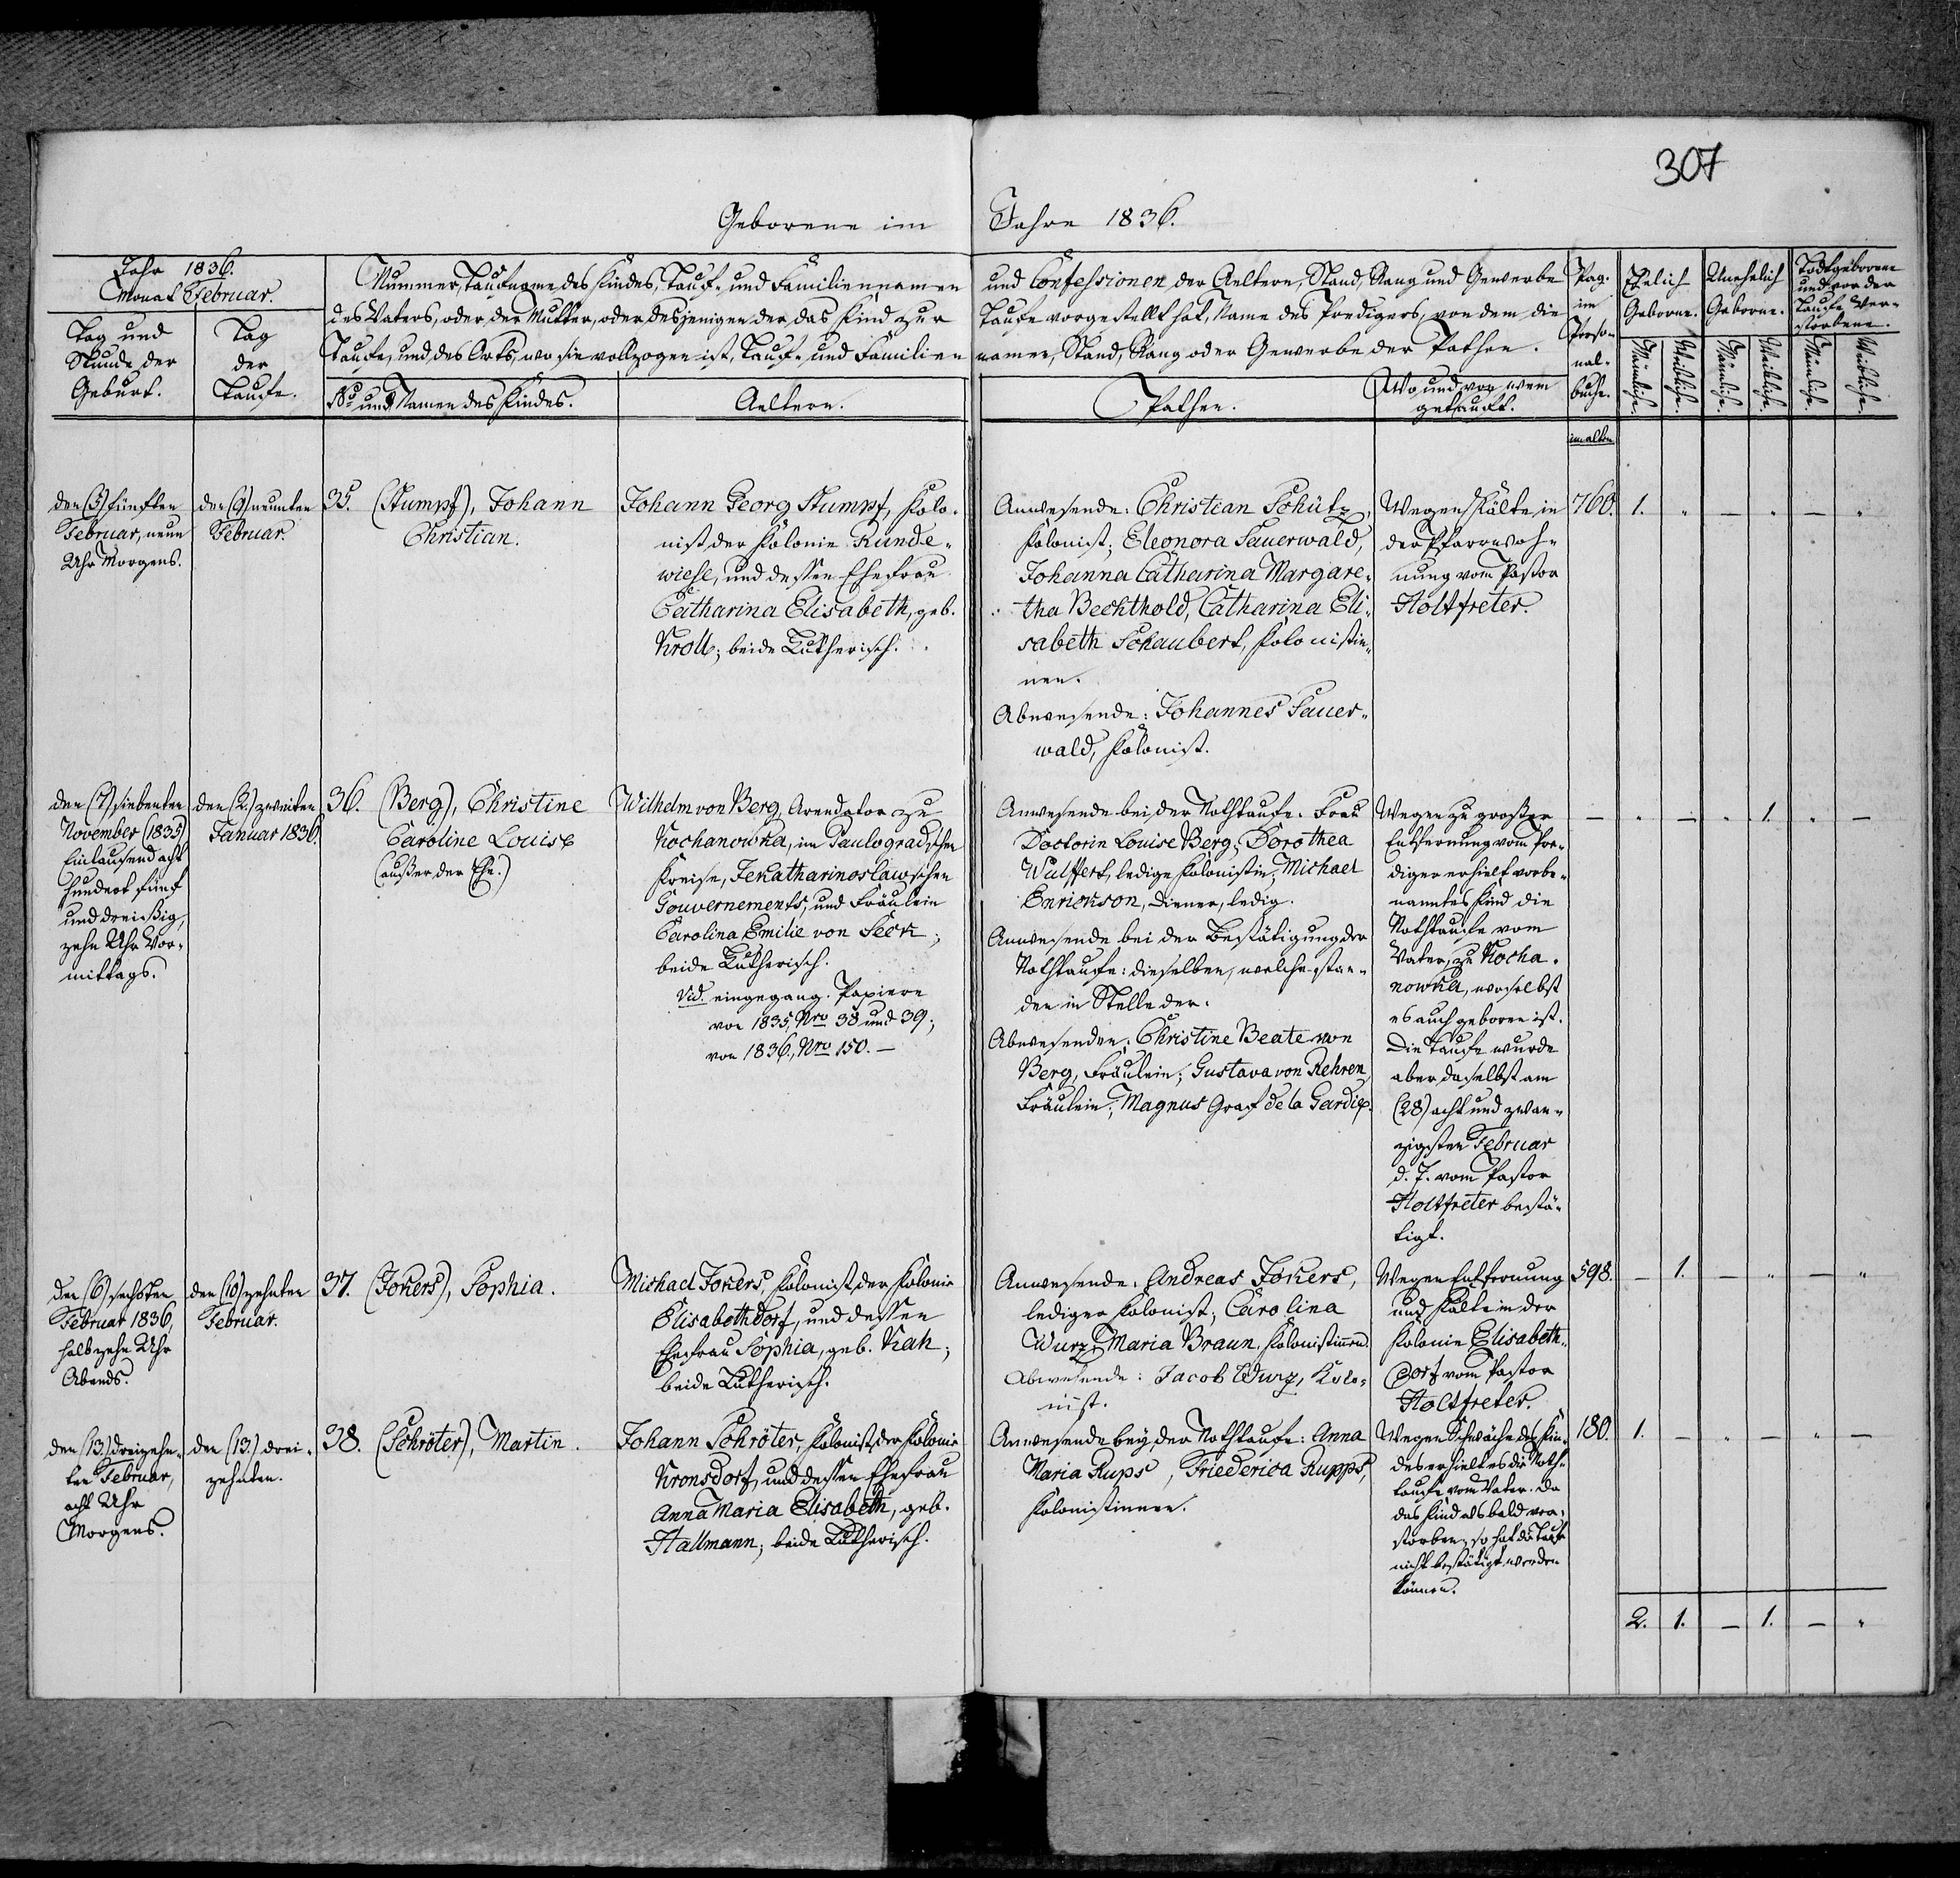 307
Geborene im Jahre 1836.
Jahr 1836.
Monat Februar.
Tag und
Stunde der
Geburt.
Tag
der
Taufe.
Nummer, Taufname des Kindes, Tauf- und Familiennamen und Confessionen der Aeltern, Stand, Rang und Gewerbe
des Vaters, oder der Mutter, oder desjenigen der das Kind zur Taufe vorgestellt hat, Name des Predigers, von dem die
Taufe, und des Orts, wo sie vollzogen ist, Tauf- und Familien namen, Stand, Rang oder Gewerbe der Pathen.
No und Namen des Kindes.
Aeltern.
Pathen.
Wo und von wem
getauft.
Pag.
im
Perso-
nal-
buche.
Ehelich
Geborne.
Unehelich
Geborne.
Todtgeborene
und vor der
Taufe Ver-
storbene.
Männliche.
Weibliche.
Männliche.
Weibliche.
Männliche.
Weibliche.
im alten
den (5) fünften
Februar, neun
Uhr Morgens.
den (9) neunten
Februar.
35. (Stumpf), Johann
Christian.
Johann Georg Stumpf, Kolo-
nist der Kolonie Runde-
wiese, und dessen Ehefrau
Catharina Elisabeth, geb.
Kroll; beide Lutherisch.
Anwesende: Christian Schütz,
Kolonist; Eleonora Sauerwald,
Johanna Catharina Margare-
tha Bechthold, Catharina Eli-
sabeth Schaubert, Kolonistin-
nen.
Abwesende: Johannes Sauer-
wald, Kolonist.
Wegen Kälte in
der Pfarrwoh-
nung vom Pastor
Holtfreter.
760. 1. " — " — "
den (7) siebenten
November (1835)
Eintausend acht
hundert fünf
und dreißig,
zehn Uhr Vor-
mittags.
den (2.) zweiten
Januar 1836.
36. (Berg), Christine
Caroline Louise
(außer der Ehe.)
Wilhelm von Berg, Arendator zu
Kochanowka, im Paulogradschen
Kreise, Jekatharinoslawschen
Gouvernements, und Fräulein
Carolina Emilie von Seck;
beide Lutherisch.
Vid. eingegang. Papiere
von 1835, Nro 38 und 39;
von 1836., Nro 150. —
Anwesende bei der Nothtaufe. Frau
Doctorin Louise Berg; Dorothea
Wulffert, ledige Kolonistin; Michael
Enrickson, Diener, ledig.
Anwesende bei der Bestätigung der
Nothtaufe: dieselben, welche stan-
den in Stelle der.
Abwesenden: Christine Beate von
Berg, Fräulein; Gustava von Rehren,
Fräulein; Magnus Graf de la Gardie.
Wegen zu großer
Entfernung vom Pre-
diger erhielt vorbe-
nanntes Kind die
Nothtaufe vom
Vater, zu Kocha-
nowka, woselbst
es auch geboren ist.
Die Taufe wurde
aber daselbst am
(28) acht und zwan-
zigsten Februar
d. J. vom Pastor
Holtfreter bestä-
tigt.
— " — " 1. " —
den (6) sechsten
Februar 1836,
halb zehn Uhr
Abends.
den (10) zehnten
Februar.
37. (Jokers), Sophia.
Michael Jokers, Kolonist der Kolonie
Elisabethdorf, und dessen
Ehefrau Sophia, geb. Kak;
beide Lutherisch.
Anwesende: Andreas Jokers,
lediger Kolonist; Carolina
Wurz, Maria Braun, Kolonistinnen.
Abwesende: Jacob Wurz, Kolo-
nist.
Wegen Entfernung
und Kälte in der
Kolonie Elisabeth-
dorf vom Pastor
Holtfreter.
598. — 1. — " — "
den (13) dreizehn-
ten Februar,
acht Uhr
Morgens.
den (13.) drei-
zehnten.
38. (Schröter), Martin.
Johann Schröter, Kolonist der Kolonie
Kronsdorf, und dessen Ehefrau
Anna Maria Elisabeth, geb.
Hallmann; beide Lutherisch.
Anwesende bey der Nothtaufe: Anna
Maria Rups, Friederica Rupps,
Kolonistinnen.
Wegen Schwäche des Kin-
des erhielt es die Noth-
taufe vom Vater. Da
das Kind alsbald ver-
storben, so hat die Taufe
nicht bestätigt werden
können.
180. 1. — " — " —
2. 1. — 1. — "